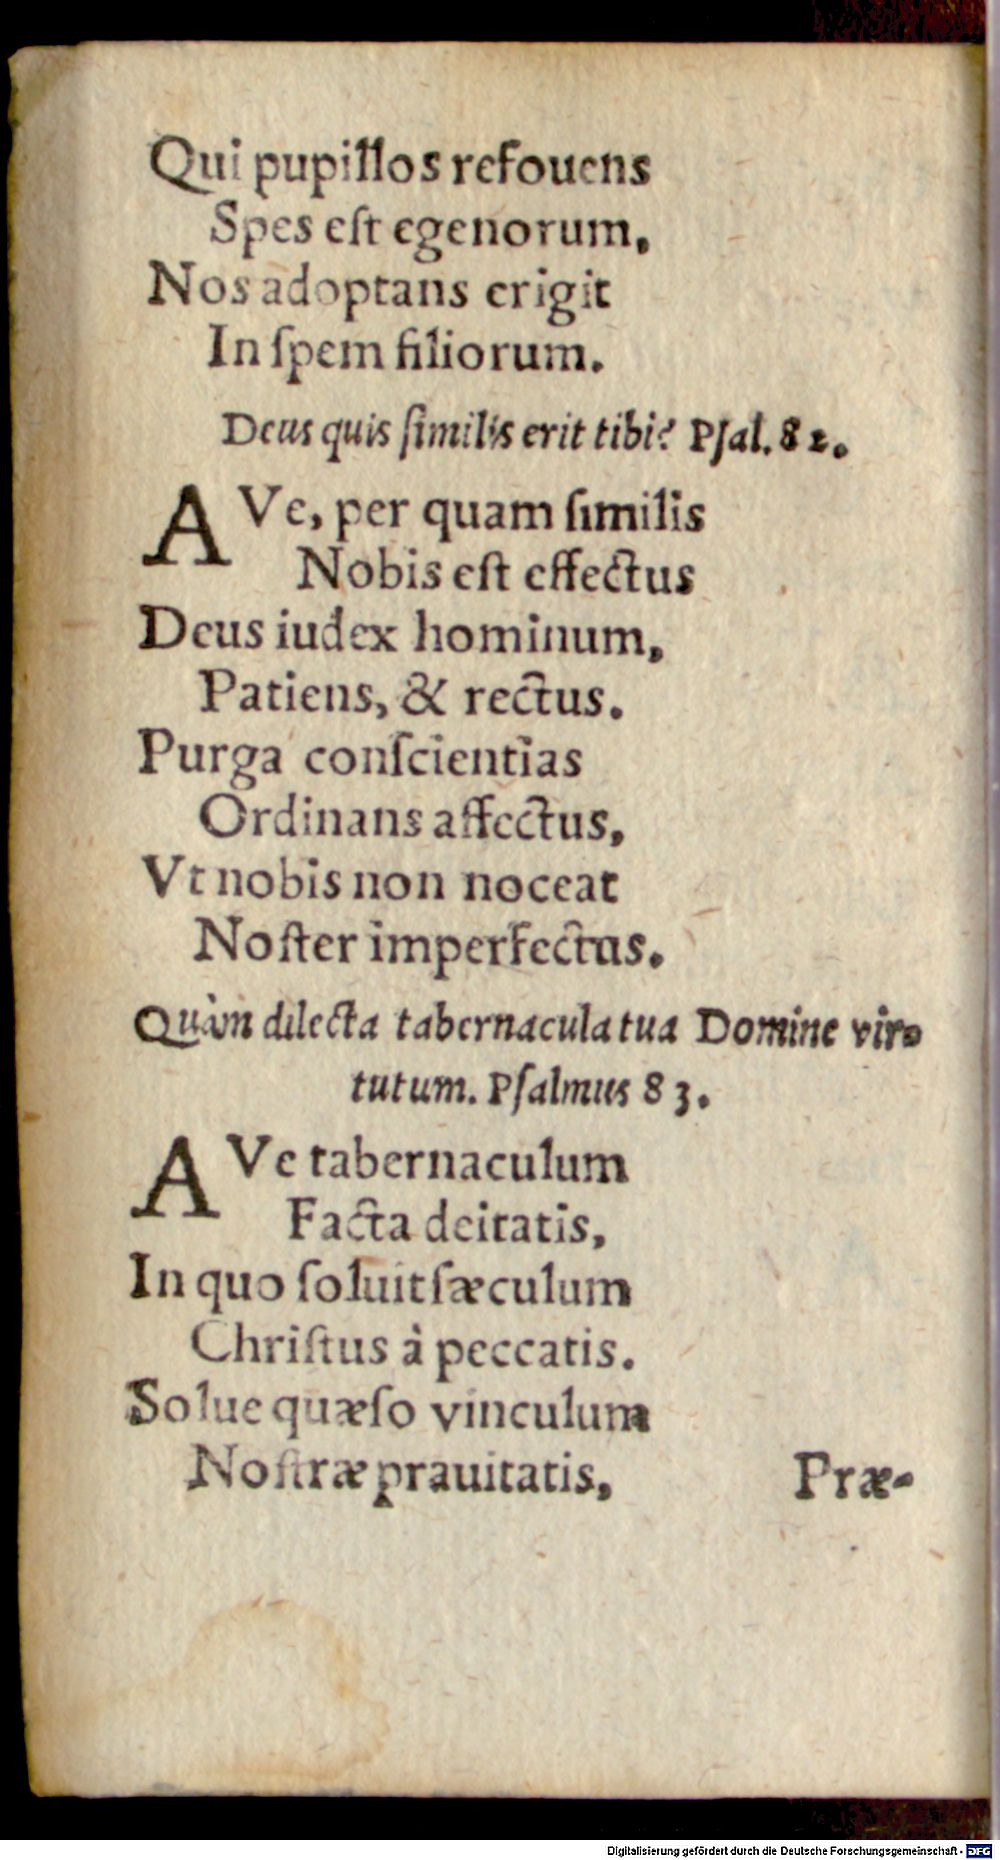 Qui pupillos refouens
Spes eſt egenorum,
Nos adoptans erigit
In ſpem filiorum.
Deus quis ſimilis erit tibi? Pſal. 82.
AVe, per quam ſimilis
Nobis eſt effectus
Deus iudex hominum,
Patiens, & rectus.
Purga conſcientias
Ordinans affectus,
Vt nobis non noceat
Noſter imperfectus.
Quàm dilecta tabernacula tua Domine vir-
tutum. Pſalmus 83.
AVe tabernaculum
Facta deitatis,
In quo ſoluit ſæculum
Chriſtus à peccatis.
Solue quæſo vinculum
Noſtræ prauitatis,
Præ-
Digitalisierung gefördert durch die Deutsche Forschungsgemeinschaft - DFG